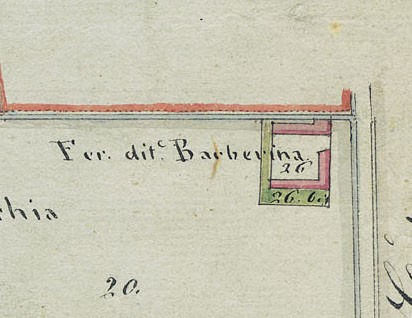 Fer. dit.ᵉ Barberina.
26
26. bis
rhia
20.